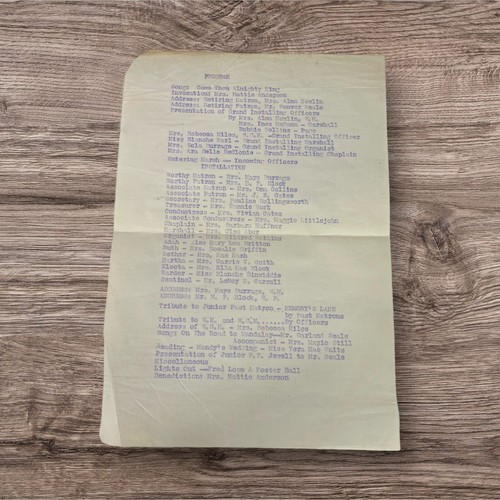 PROGRAM
Song: Come Thou Almighty King
Invocation: Mrs. Mattie Anderson
Address: Retiring Matron, Mrs. Alma Newlin
Address: Retiring Patron, Mr. Seale
Presentation of Grand Installing Officers
By Mrs. Alma Newlin, W.M.
Mrs. Inez - Marshall
Bobbie Collins - Page
Mrs. Rebecca Hiles, -Grand Installing Officer
Miss Blanche - Grand Installing Marshall
Mrs. Burrage - Grand Installing Organist
Mrs. Ara Belle - Grand Installing Chaplain
Entering March -- Incoming Officers
INSTALLATION
Worthy Matron - Mrs. Maye Burrage
Worthy Patron - Block
Associate Matron - Mrs. Ona Collins
Associate Patron - Mr. Gates
Secretary - Mrs. Pauline Hollingsworth
Treasurer - Mrs.
Conductress - Mrs. Vivian Gates
Associate Conductress - Mrs. Maggie Littlejohn
Chaplain - Mrs. Barbara
Marshall - Mrs.
Organist - Mrs. Mildred
Adah - Miss Mary Lou Britton
Ruth - Mrs. Rosalie Griffin
Esther - Mrs. Mae Nash
Martha - Mrs. Carrie Smith
Electa - Mrs. Mae Block
Warder - Miss Blanche
Sentinel - Mr. Carroll
ADDRESS: Mrs. Maye Burrage, W.M.
ADDRESS: Mr. Block, W. P.
Tribute to Junior Past Matron - MEMORY'S LANE
by Past Matrons
Tribute to W.M. and by Officers
Address of - Mrs. Rebecca Hiles
Song: On The Road to Mandalay--Mr. Garland Seale
Accompanist - Mrs. Magie Still
Reading - Mandy's Wedding - Miss Vera Mae
Presentation of Junior P.P. Jewell to Mr. Seale
Miscellaneous
Lights Out --Fred Loom A Foster Hall
Benediction: Mrs. Mattie Anderson